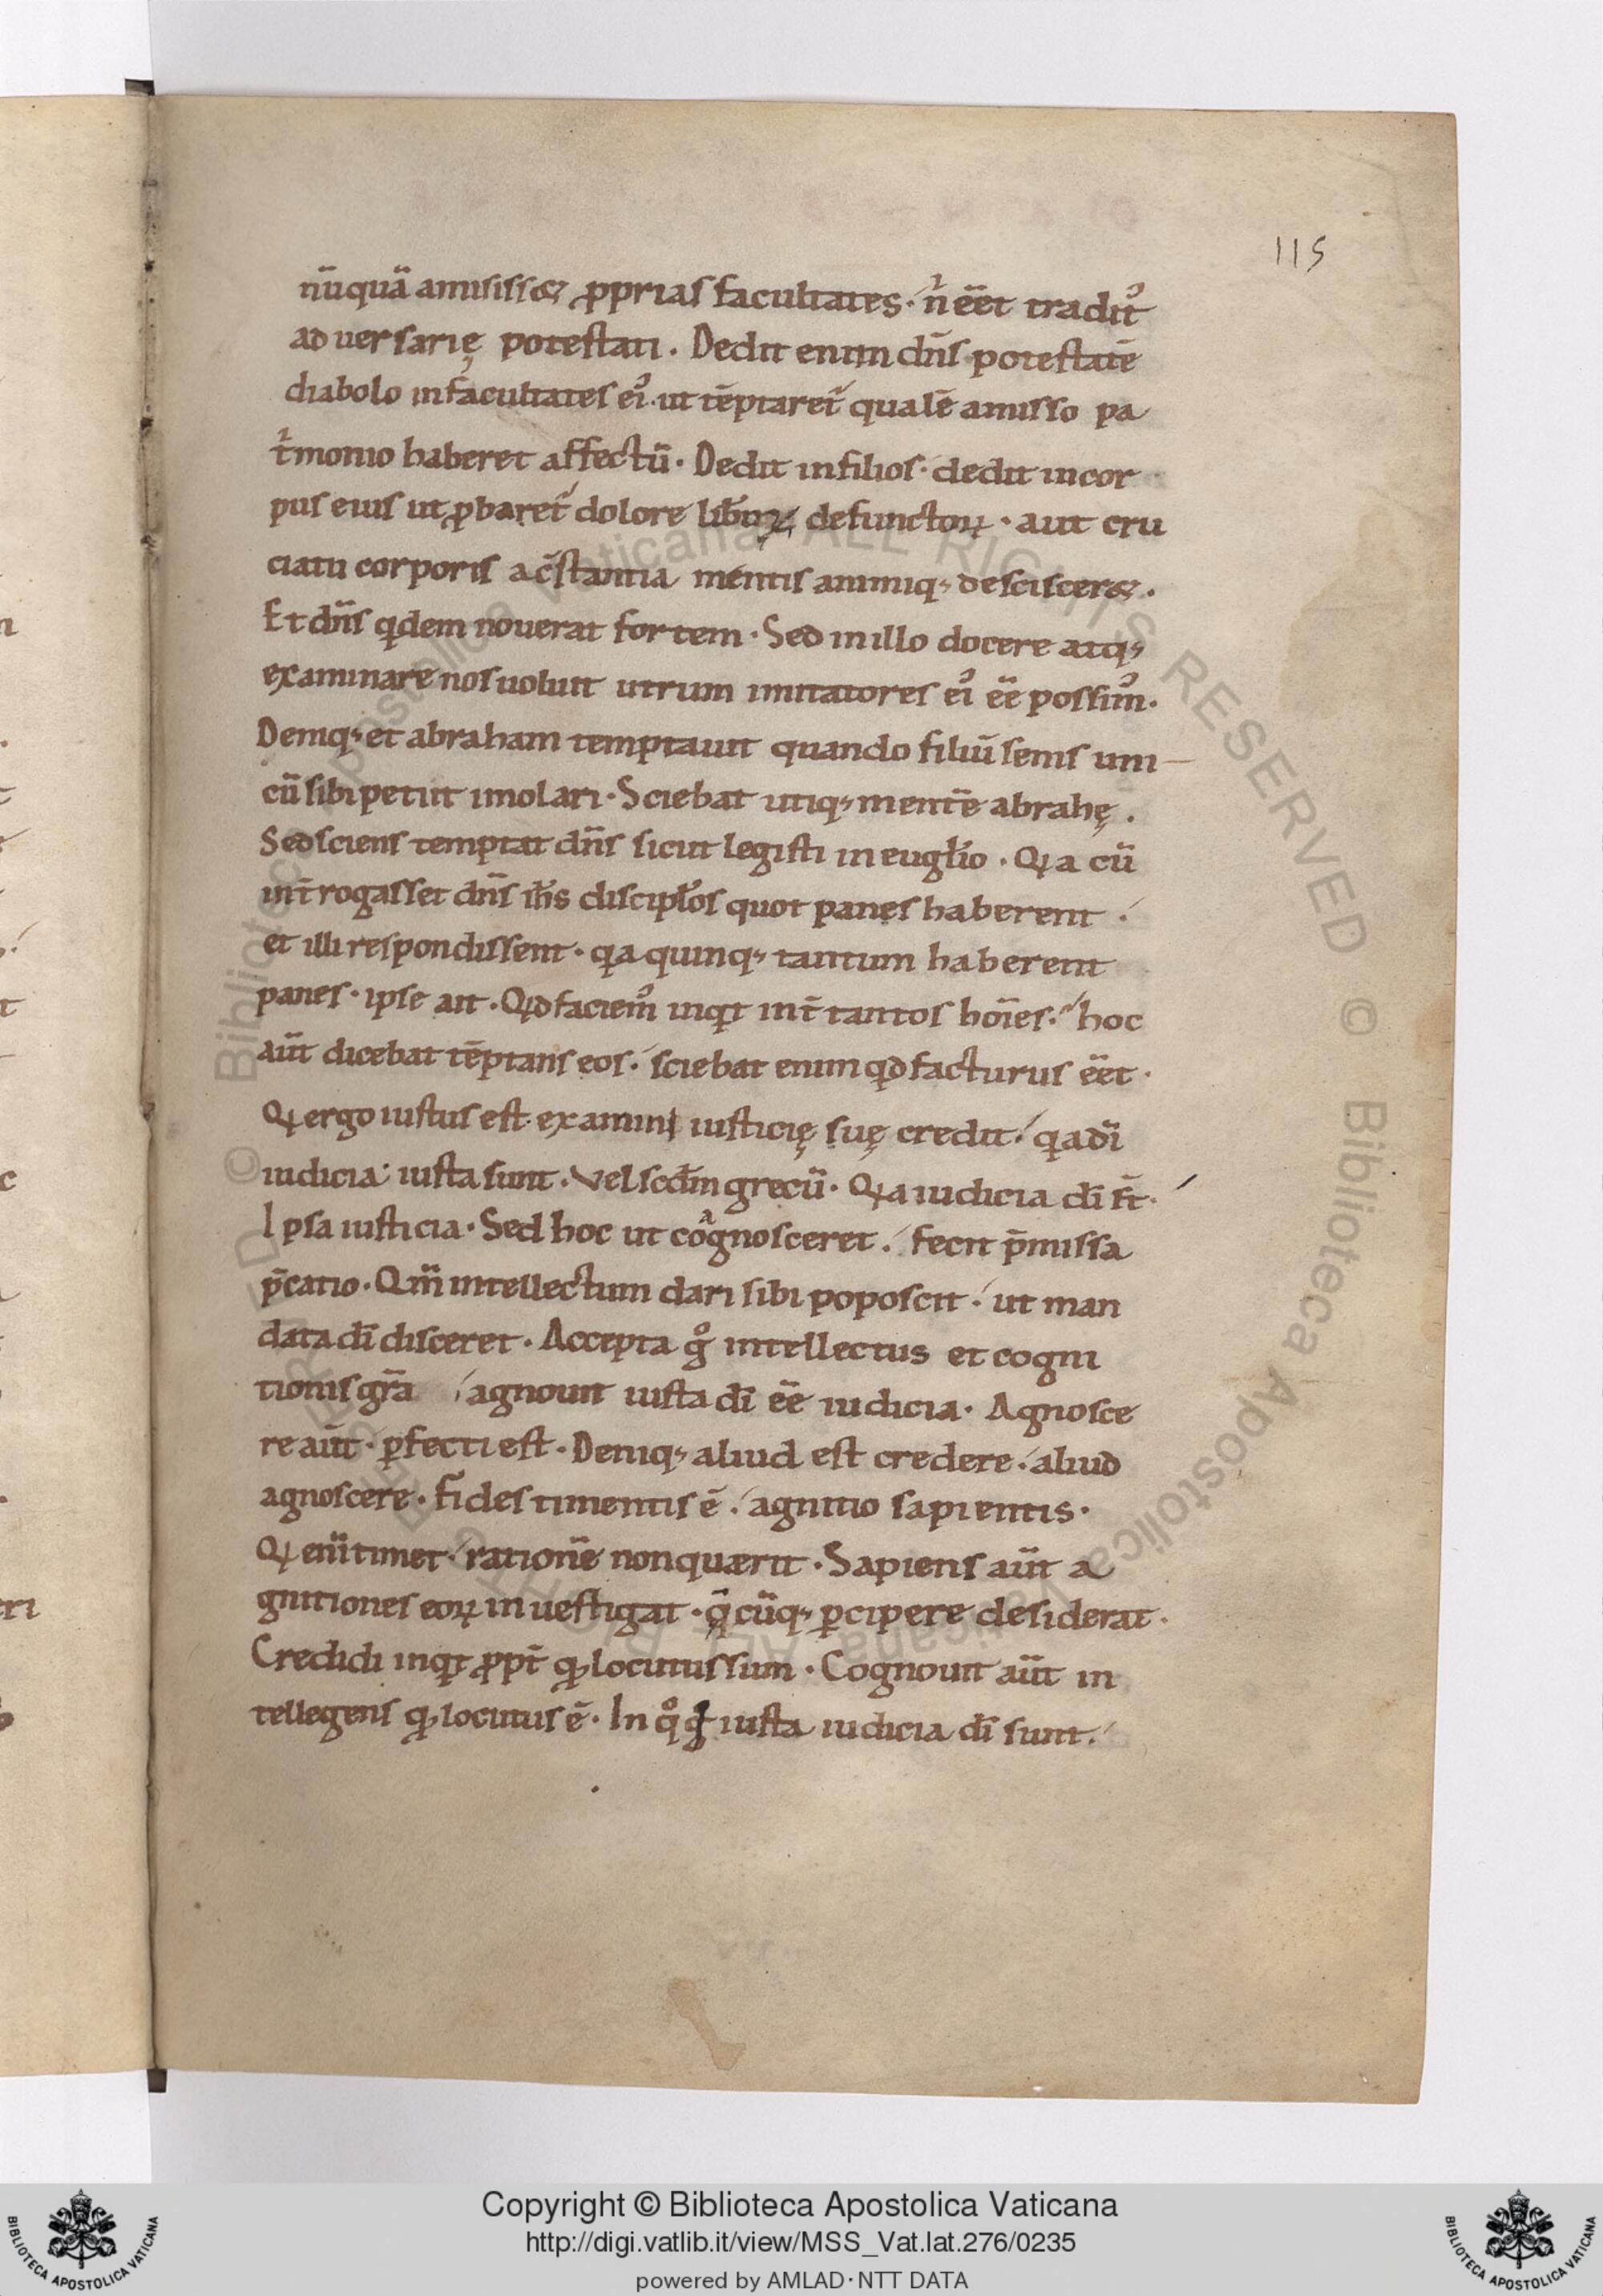 115
nūquā amisiss& ꝓprias facultates· n̓ eēt tradit᷒
aduersarię potestati. Dedit enim dn̄s potestatē
diabolo infacultates ei᷒. ut tēptaret᷑ qualē amisso pa
t̓monio haberet affectū· Dedit infilios· dedit incor
pus eius ut ꝓbaret᷑ dolore lib̄oꝝ defunctoꝝ· aut cru
ciatu corporis ac̄stantia mentis animiq; desciscer&.
Et dn̄s qdem nouerat fortem· Sed in illo docere atq;
examinare nos uoluit utrum imitatores ei᷒ eē possim᷒·
Deniq; et abraham temptauit quando filiū senis uni
cū sibi petiit imolari· Sciebat utiq; mentē abrahę.
Sed sciens temptat dn̄s sicut legisti in euglio· Qꝛa cū
int̄rogasset dn̄s ih̄s discipłos quot panes haberent·
et illi respondissent· qꝛa quinq; tantum haberent
panes· ipse ait· Qd faciem᷒ inqt int̄ tantos hoīes· hoc
aūt dicebat tēptans eos· sciebat enim qd facturus eēt·
Qꝛ ergo iustus est examini iusticię suę credit· qꝛa dī
iudicia iusta sunt· Vel scdm grecū· Qꝛa iudicia dī st̄·
Ipsa iusticia· Sed hoc ut cognosceret· fecit p̄missa
p̄catio· Qm̄ intellectum dari sibi poposcit· ut man
data dī disceret· Accepta gͦ intellectus et cogni
tionis gr̄a agnouit iusta dī eē iudicia· Agnosce
re aūt· ꝑfecti est· Deniq; aliud est credere· aliud
agnoscere· Fides timentis ē· agnitio sapientis·
Qꝛ enī timet· rationē non quærit· Sapiens aūt a
gnitiones eoꝝ inuestigat· q̄cūq; ꝑcipere desiderat·
Credidi inqt ꝓpt̄ qꝛ locutus sum· Cognouit aūt in
tellegens qꝛ locutus ē· In qͦ qꝛ iusta iudicia dī sunt·
© Biblioteca Apostolica Vaticana ALL RIGHTS RESERVED
Copyright © Biblioteca Apostolica Vaticana
http://digi.vatlib.it/view/MSS_Vat.lat.276/0235
powered by AMLAD·NTT DATA
BIBLIOTECA APOSTOLICA VATICANA
BIBLIOTECA APOSTOLICA VATICANA